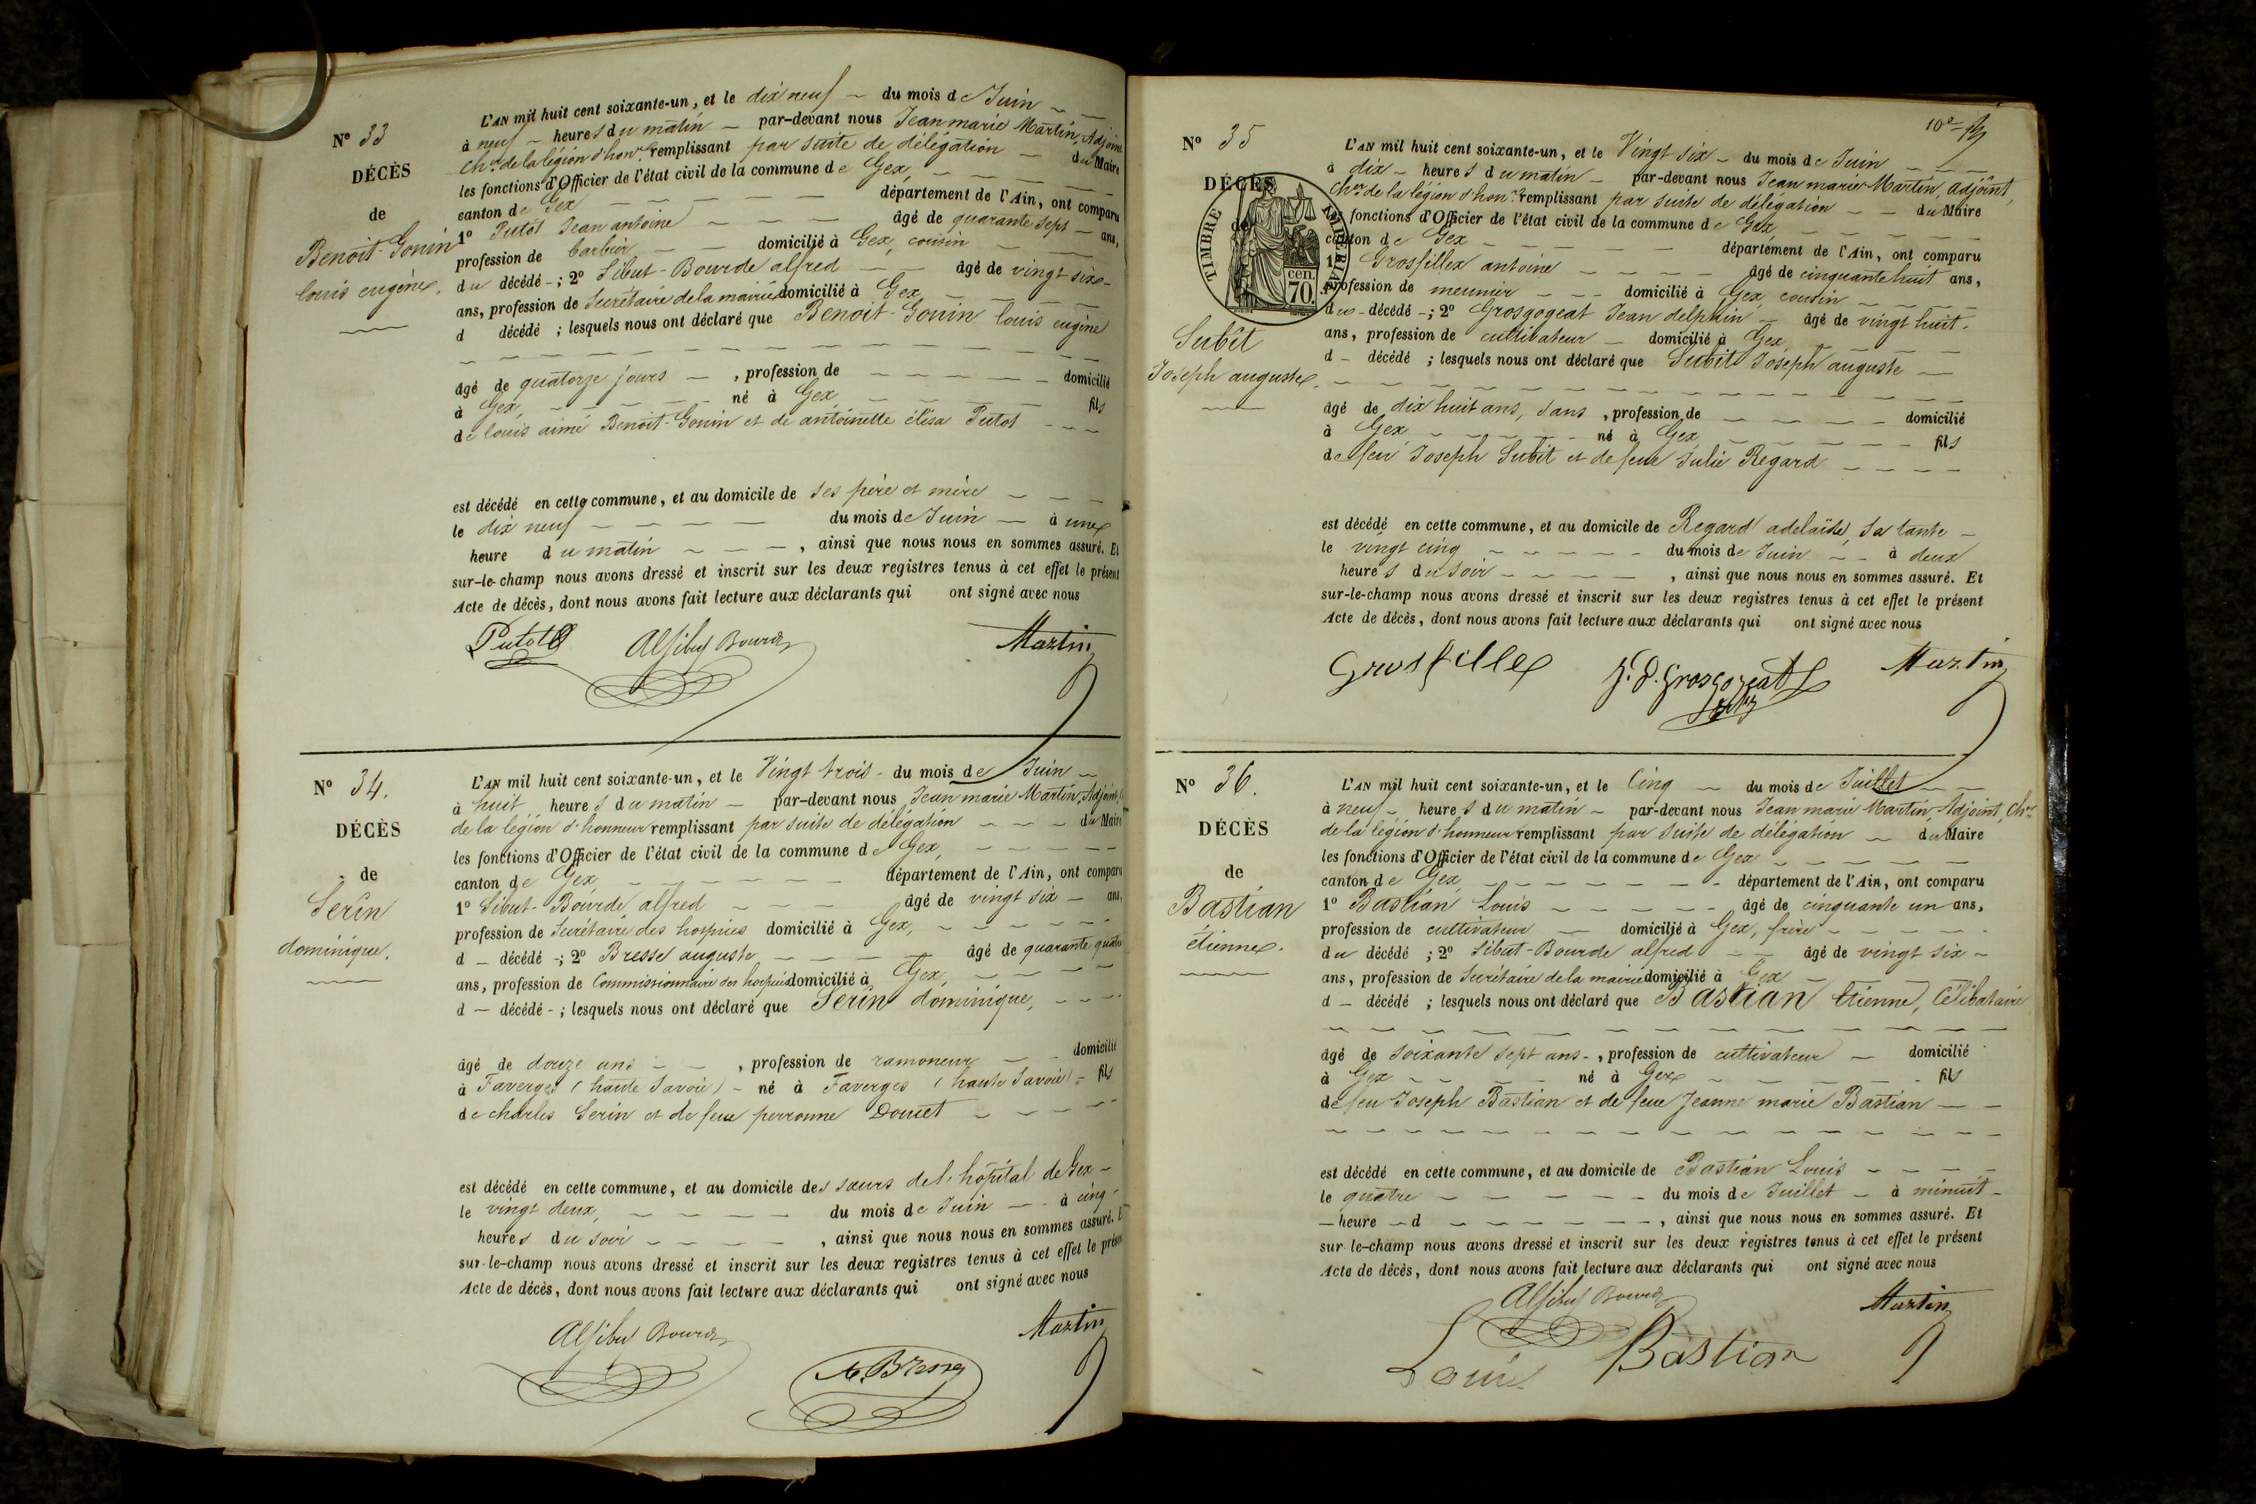 N° 33
DÉCÈS
de
Benoit-Gonin
louis eugène.
L'AN mil huit cent soixante-un, et le dix neuf du mois de Juin
à neuf heures du matin par-devant nous Jean marie Martin, Adjoint
Chr de la légion d'honr remplissant par suite de délégation du Maire
les fonctions d'Officier de l'état civil de la commune de Gex,
canton de Gex département de l'Ain, ont comparu
1° Putot Jean antoine âgé de quarante sept ans,
profession de barbier domicilié à Gex, cousin
du décédé ; 2° Sibut-Bourde alfred âgé de vingt six
ans, profession de Secrétaire de la mairie domicilié à Gex
d décédé ; lesquels nous ont déclaré que Benoit-Gonin louis eugène
âgé de quatorze jours , profession de domicilié
à Gex, né à Gex, fils
de louis aimé Benoit-Gonin et de antoinette élisa Putot
est décédé en cette commune, et au domicile de ses père et mère
le dix neuf du mois de Juin à une
heure du matin , ainsi que nous nous en sommes assuré. Et
sur-le-champ nous avons dressé et inscrit sur les deux registres tenus à cet effet le présent
Acte de décès, dont nous avons fait lecture aux déclarants qui ont signé avec nous
Putot Alf Sibut Bourde Martin
N° 34.
DÉCÈS
de
Serin
dominique.
L'AN mil huit cent soixante-un, et le Vingt trois du mois de Juin
à huit heures du matin par-devant nous Jean marie Martin, Adjoint,
de la légion d'honneur remplissant par suite de délégation du Maire
les fonctions d'Officier de l'état civil de la commune de Gex,
canton de Gex département de l'Ain, ont comparu
1° Sibut-Bourde alfred âgé de vingt six ans,
profession de Secrétaire des hospices domicilié à Gex,
d décédé ; 2° Bresse auguste âgé de quarante quatre
ans, profession de Commissionnaire des hospices domicilié à Gex,
d décédé ; lesquels nous ont déclaré que Serin dominique,
âgé de douze ans , profession de ramoneur domicilié
à Faverges (haute Savoie) né à Faverges (haute Savoie) fils
de charles Serin et de feue perronne Doucet
est décédé en cette commune, et au domicile des sœurs de l'hôpital de Gex
le vingt deux, du mois de Juin à cinq
heures du soir , ainsi que nous nous en sommes assuré. Et
sur-le-champ nous avons dressé et inscrit sur les deux registres tenus à cet effet le présent
Acte de décès, dont nous avons fait lecture aux déclarants qui ont signé avec nous
Alf Sibut Bourde A. Bresse Martin
10e
N° 35
DÉCÈS
de
TIMBRE IMPÉRIAL
70 cen.
Subit
Joseph auguste.
L'AN mil huit cent soixante-un, et le Vingt six du mois de Juin
à dix heures du matin par-devant nous Jean marie Martin, adjoint,
Chr de la légion d'honr remplissant par suite de délégation du Maire
les fonctions d'Officier de l'état civil de la commune de Gex
canton de Gex département de l'Ain, ont comparu
1° Grosfillex antoine âgé de cinquante huit ans,
profession de meunier domicilié à Gex, cousin
du décédé ; 2° Grosgogeat Jean delphin âgé de vingt huit
ans, profession de cultivateur domicilié à Gex,
d décédé ; lesquels nous ont déclaré que Subit Joseph auguste
âgé de dix huit ans, sans , profession de domicilié
à Gex né à Gex fils
de feu Joseph Subit et de feue Julie Regard
est décédé en cette commune, et au domicile de Regard adelaïde, sa tante
le vingt cinq du mois de Juin à deux
heures du soir , ainsi que nous nous en sommes assuré. Et
sur-le-champ nous avons dressé et inscrit sur les deux registres tenus à cet effet le présent
Acte de décès, dont nous avons fait lecture aux déclarants qui ont signé avec nous
Grosfillex J. D. Grosgogeat Martin
N° 36.
DÉCÈS
de
Bastian
étienne.
L'AN mil huit cent soixante-un, et le Cinq du mois de Juillet
à neuf heures du matin par-devant nous Jean marie Martin, Adjoint, Chr
de la légion d'honneur remplissant par suite de délégation du Maire
les fonctions d'Officier de l'état civil de la commune de Gex
canton de Gex département de l'Ain, ont comparu
1° Bastian Louis âgé de cinquante un ans,
profession de cultivateur domicilié à Gex, frère
du décédé ; 2° Sibut-Bourde alfred âgé de vingt six
ans, profession de Secrétaire de la mairie domicilié à Gex
d décédé ; lesquels nous ont déclaré que Bastian Etienne, Célibataire
âgé de soixante sept ans , profession de cultivateur domicilié
à Gex né à Gex fils
de feu Joseph Bastian et de feue Jeanne marie Bastian
est décédé en cette commune, et au domicile de Bastian Louis
le quatre du mois de Juillet à minuit
heure d , ainsi que nous nous en sommes assuré. Et
sur-le-champ nous avons dressé et inscrit sur les deux registres tenus à cet effet le présent
Acte de décès, dont nous avons fait lecture aux déclarants qui ont signé avec nous
Alf Sibut Bourde Martin
Louis Bastian